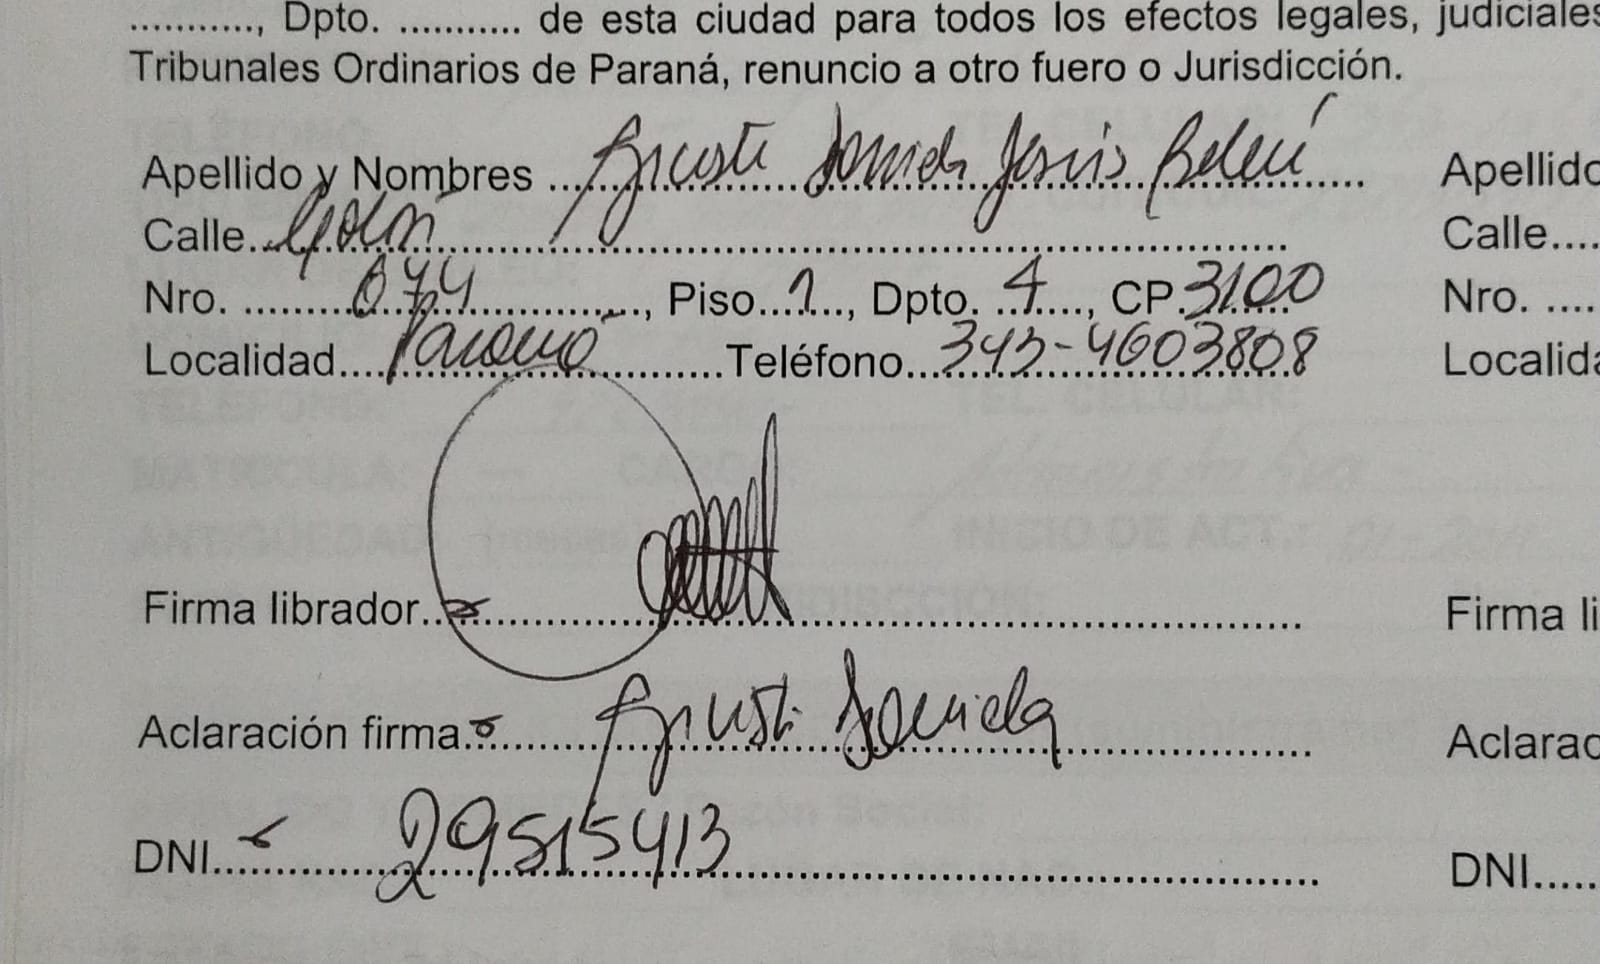 ..........., Dpto. ........... de esta ciudad para todos los efectos legales, judiciales
Tribunales Ordinarios de Paraná, renuncio a otro fuero o Jurisdicción.
Apellido y Nombres ... Daniela Jesús Belén Apellido
Calle.. Calle....
Nro. ........ 674 ........, Piso.... 1 ..., Dpto. .. 4 ..., CP. 3100 Nro. ....
Localidad.... Paraná ........Teléfono... 343-4603808 Localida
Firma librador.. Firma li
Aclaración firma... Daniela Aclarac
DNI.... 29515413 DNI.....